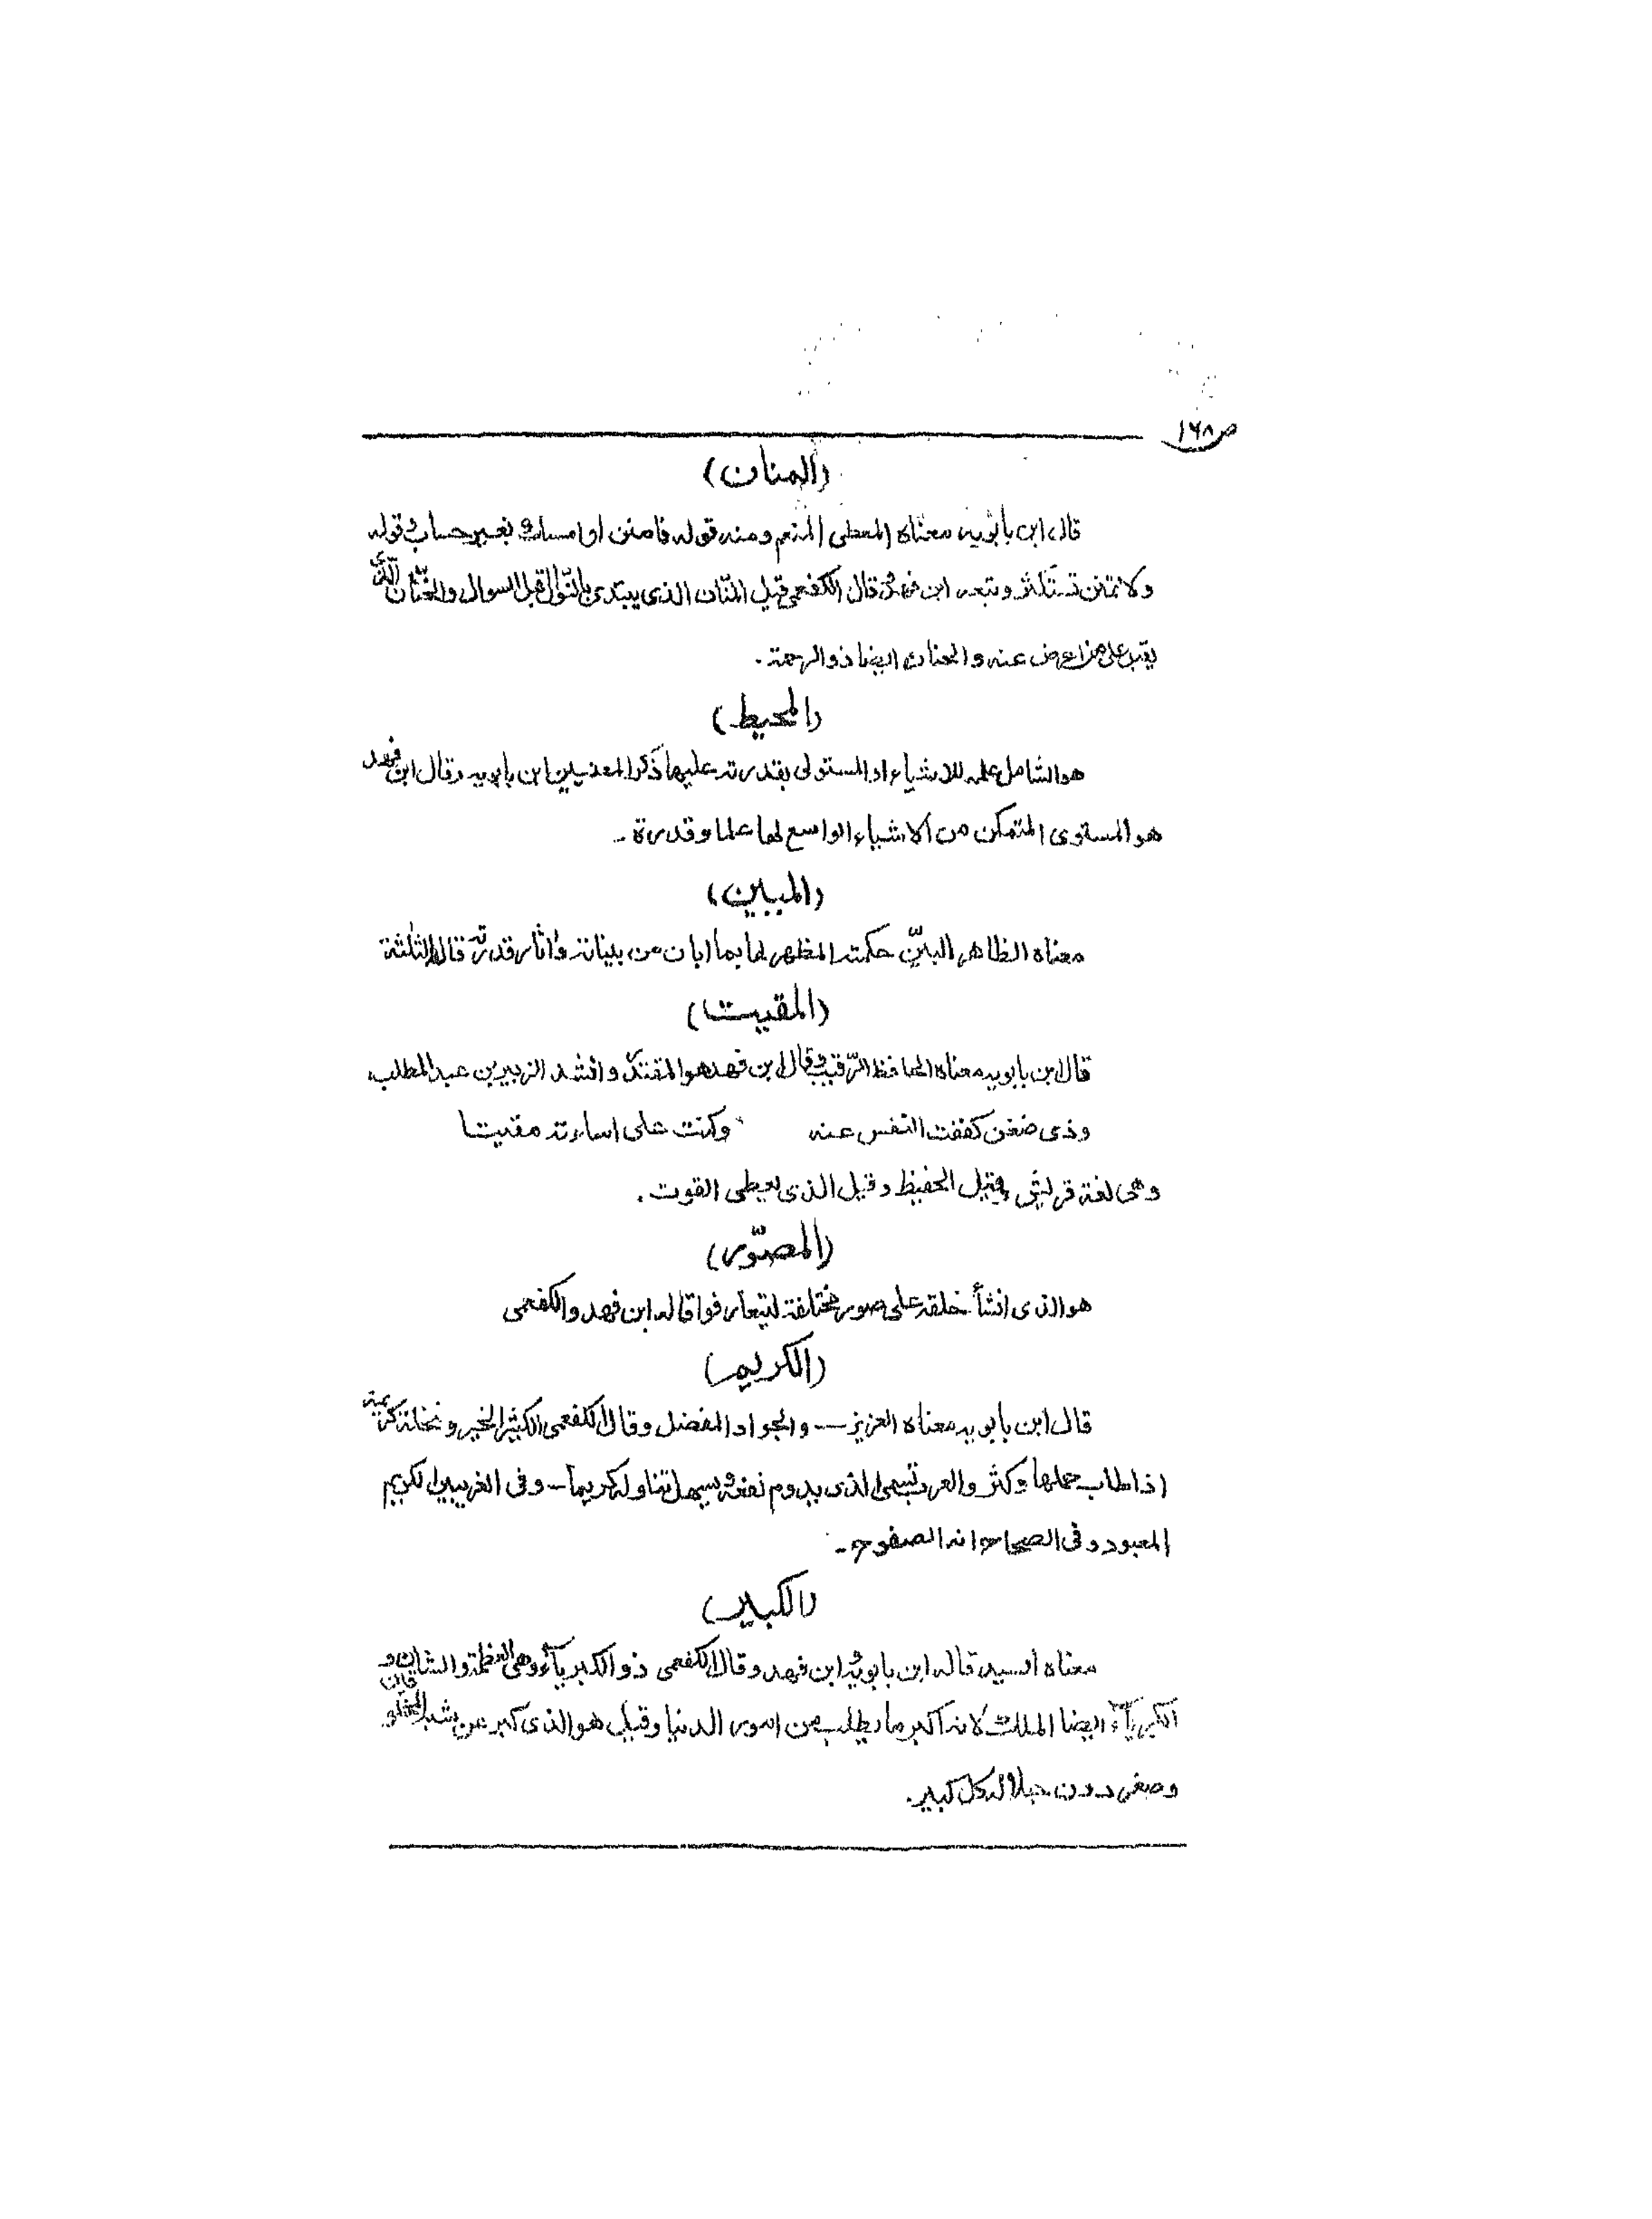 ص ١٦٨
(المنان)
قال ابن بابويه معناه المعطى المنعم ومنه قوله فامنن او امسك بغير حساب وقوله
ولا تمنن تستكثر وتبعه ابن فهد قال الكفعمى قيل المنّان الذى يبتدئ بالنّوال قبل السوال والحنّان الّذى
يقبل على من اعرض عنه والحنان ايضا ذو الرحمة.
(المحيط)
هو الشامل علمه للاشياء او المستولى بقدرته عليها ذكر المعنيين ابن بابويه وقال ابن فهد
هو المستوى المتمكن من الاشياء الواسع لها علما وقدرة -
(المبين)
معناه الظاهر البيّن حكمته المظهر لها بما ابان من بيناته واثار قدرته قاله الثلثة
(المقيت)
قال ابن بابويه معناه الحافظ الرّقيب وقال ابن فهد هو المقتدر وانشد الزبير بن عبد المطلب
وذى ضغن كففت النفس عنه وكنت على اساءته مقيتا
وهى لغة قريش وقيل الحفيظ وقيل الذى يعطى القوت.
(المصوّر)
هو الذى انشأ خلقه على صور مختلفة ليتعارفوا قاله ابن فهد والكفعمى
(الكريم)
قال ابن بابويه معناه العزيز — والجواد المفضل وقال الكفعمى الكثير الخير ونخلة كريمة
اذا طاب حملها وكثر والعرب تسمى الذى يدوم نفعه ويسهل تناوله كريما — وفى الغريبين الكريم
المعبود وفى الصحاح انه الصفوح -
(الكبير)
معناه السيد قاله ابن بابويه و ابن فهد وقال الكفعمى ذو الكبرياء وهى العظمة والشان و كان
الكبرياء ايضا الملك لانه اكبر ما يطلب من امور الدنيا وقيل هو الذى كبر عن شبه المخلو
وصغر دون جلاله كل كبير.